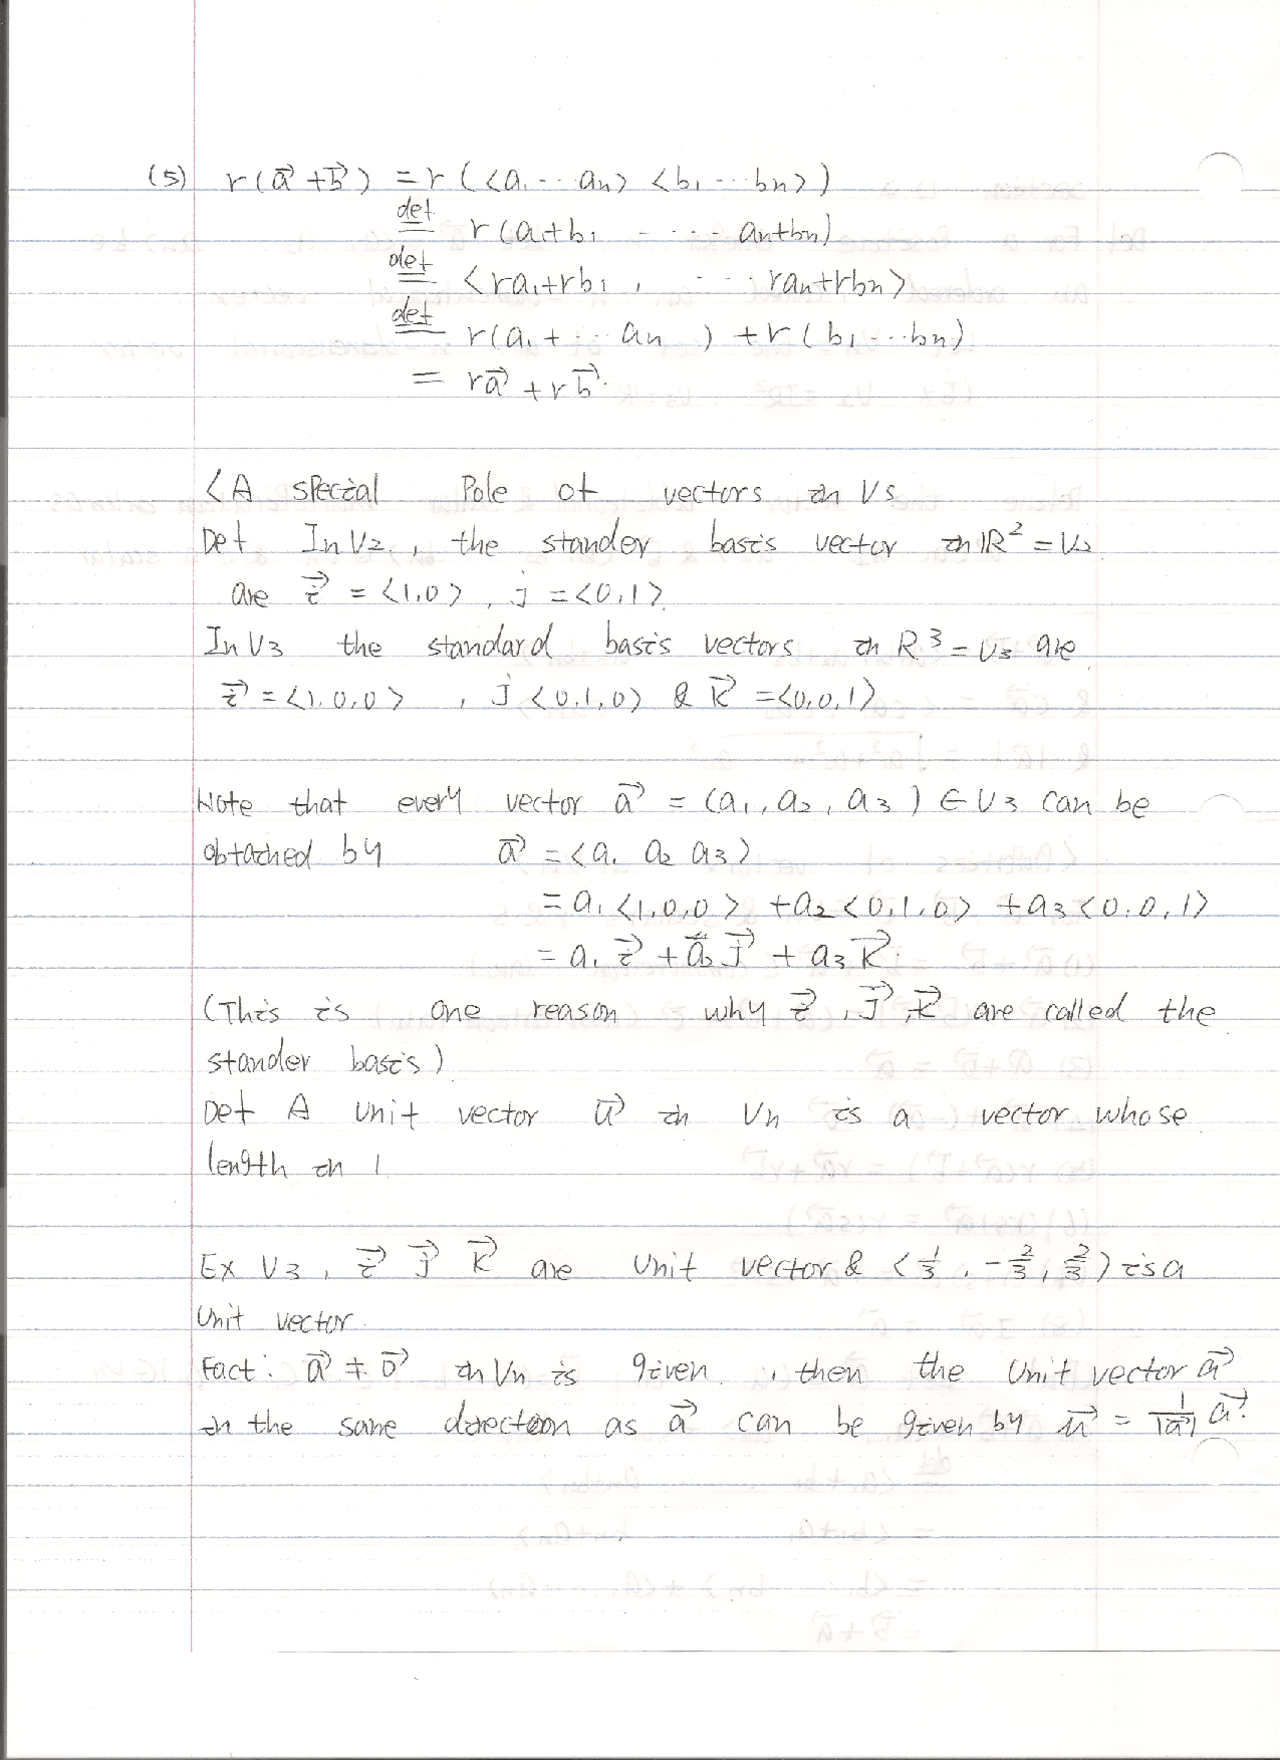 (5) r(a⃗ + b⃗) = r(<a₁ ... an> <b₁ ... bn>)
def = r(a₁+b₁ ..... an+bn)
def = <ra₁+rb₁, ..... ran+rbn>
def = r(a₁+ ... an) + r(b₁ ... bn)
= ra⃗ + rb⃗.
<A special Pole of vectors in Vs
Def In V₂, the stander basis vector in ℝ² = V₂
are i⃗ = <1,0>, j = <0,1>
In V₃ the standard basis vectors in R³ = V₃ are
i⃗ = <1,0,0>, j <0,1,0> & k⃗ = <0,0,1>
Note that every vector a⃗ = (a₁, a₂, a₃) ∈ V₃ can be
obtached by a⃗ = <a₁ a₂ a₃>
= a₁<1,0,0> + a₂<0,1,0> + a₃<0,0,1>
= a₁ i⃗ + a⃗₂ j⃗ + a₃ k⃗.
(This is one reason why i⃗, j⃗, k⃗ are called the
stander basis)
Def A unit vector u⃗ in Vn is a vector whose
length in 1
Ex V₃, i⃗ j⃗ k⃗ are unit vector & <1/3, -2/3, 2/3> is a
unit vector.
Fact: a⃗ ≠ 0⃗ in Vn is given, then the unit vector a⃗
in the same direction as a⃗ can be given by u⃗ = 1/|a⃗| a⃗.